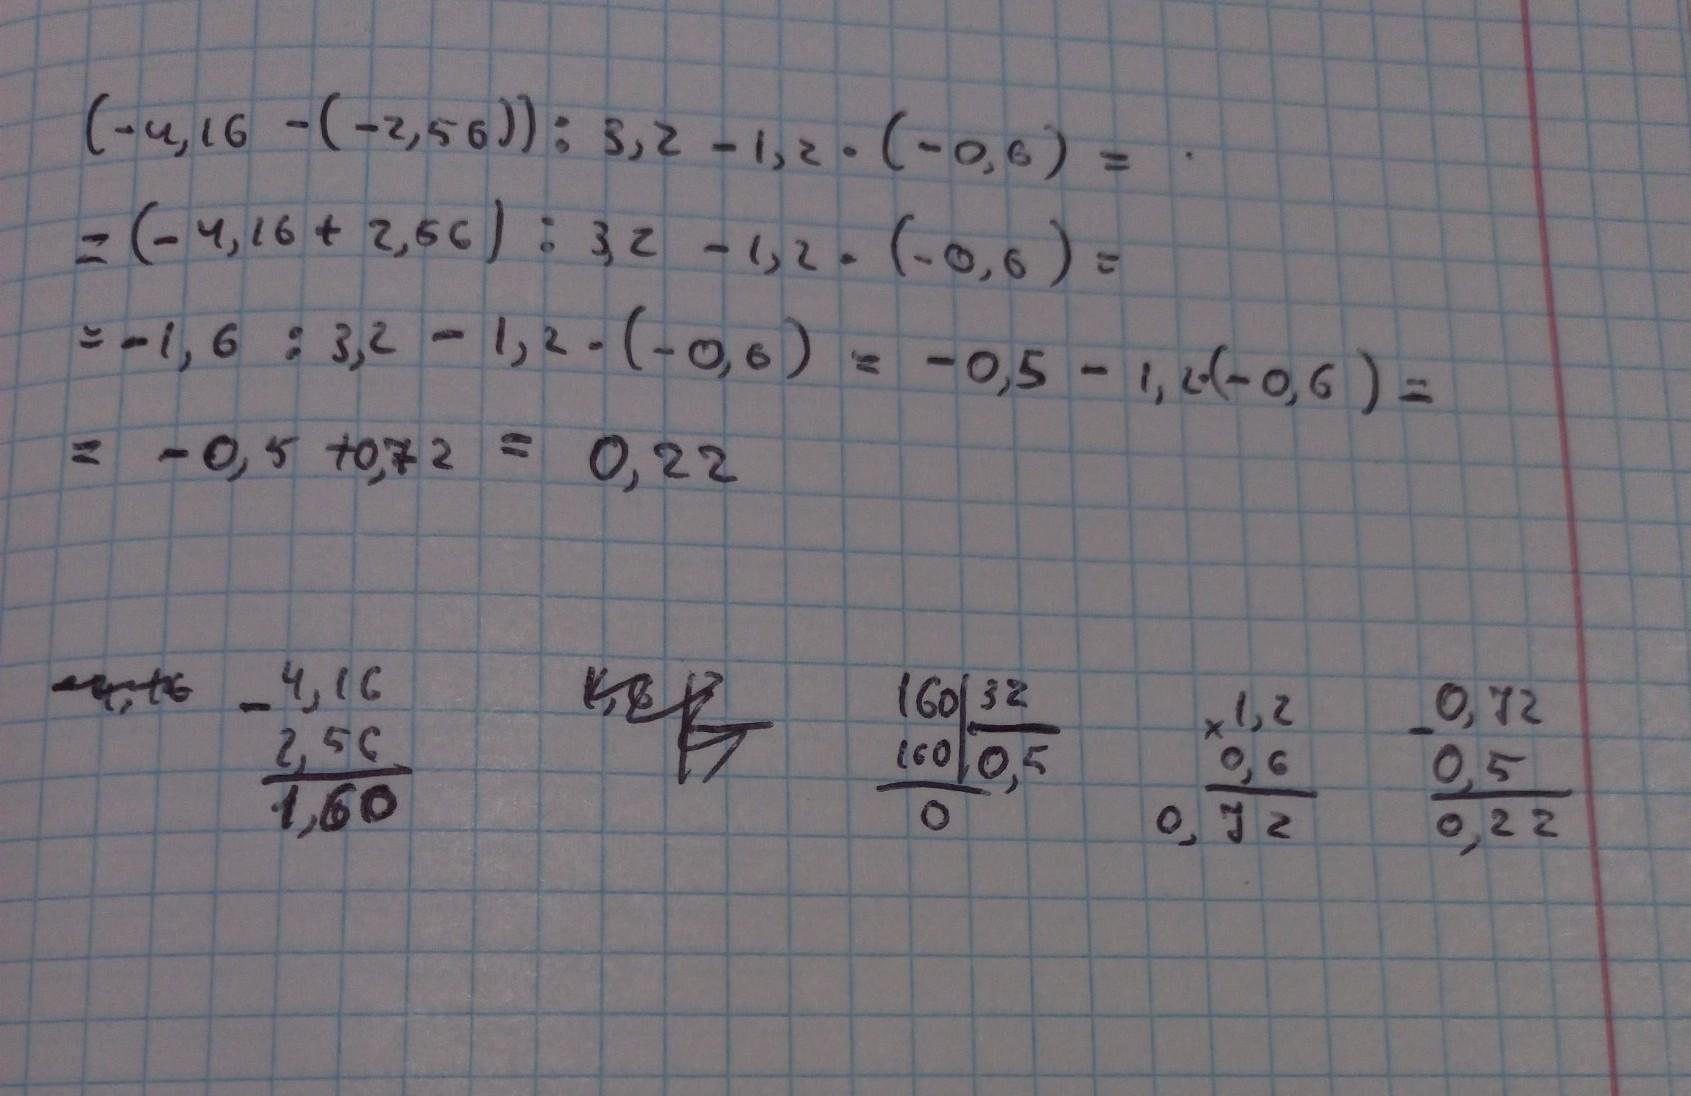 (-4,16 -(-2,56)) : 3,2 - 1,2 · (-0,6) =
= (-4,16 + 2,56) : 3,2 - 1,2 · (-0,6) =
= -1,6 : 3,2 - 1,2 · (-0,6) = -0,5 - 1,2·(-0,6) =
= -0,5 +0,72 = 0,22
-4,16
- 4,16
2,56
1,60
160 | 32
160 | 0,5
0
× 1,2
0,6
0,72
- 0,72
0,5
0,22